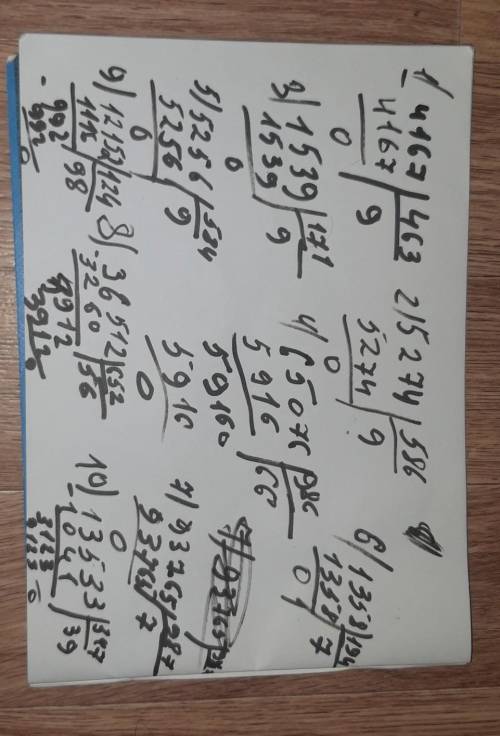 1) 4167 | 463
4167 | 9
0
2) 5274 | 586
5274 | 9
0
3) 1539 | 171
1539 | 9
0
4) 65076 | 986
5916 | 66
5916
5916
0
5) 5256 | 584
5256 | 9
0
6) 1358 | 194
1358 | 7
0
8) 36512 | 652
3260 | 56
3912
3912
0
9) 12152 | 124
1116 | 98
992
992
0
10) 13533 | 347
1041 | 39
3123
3123
0